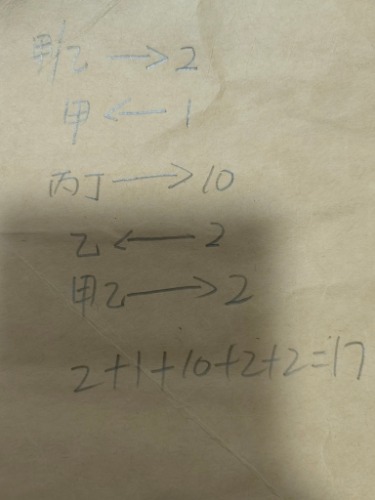 甲乙 → 2
甲 ← 1
丙丁 → 10
乙 ← 2
甲乙 → 2
2+1+10+2+2=17